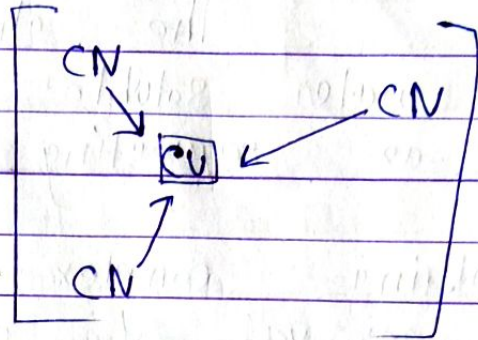 CN
CN
Cu
CN